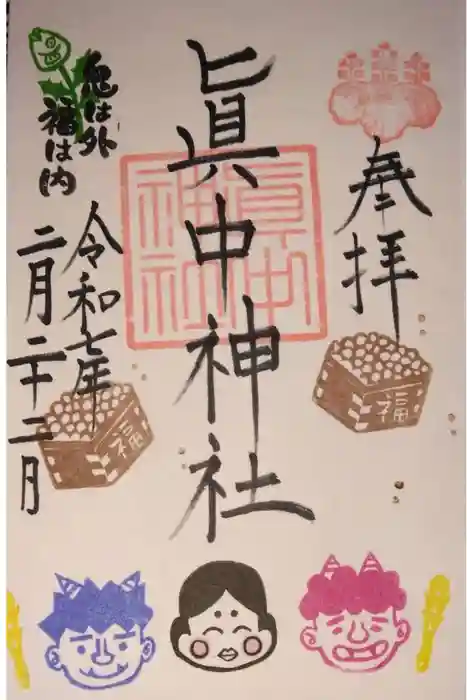 奉拝
福
眞中神社
眞中
神社
鬼は外
福は内
令和七年
二月二十二日
福